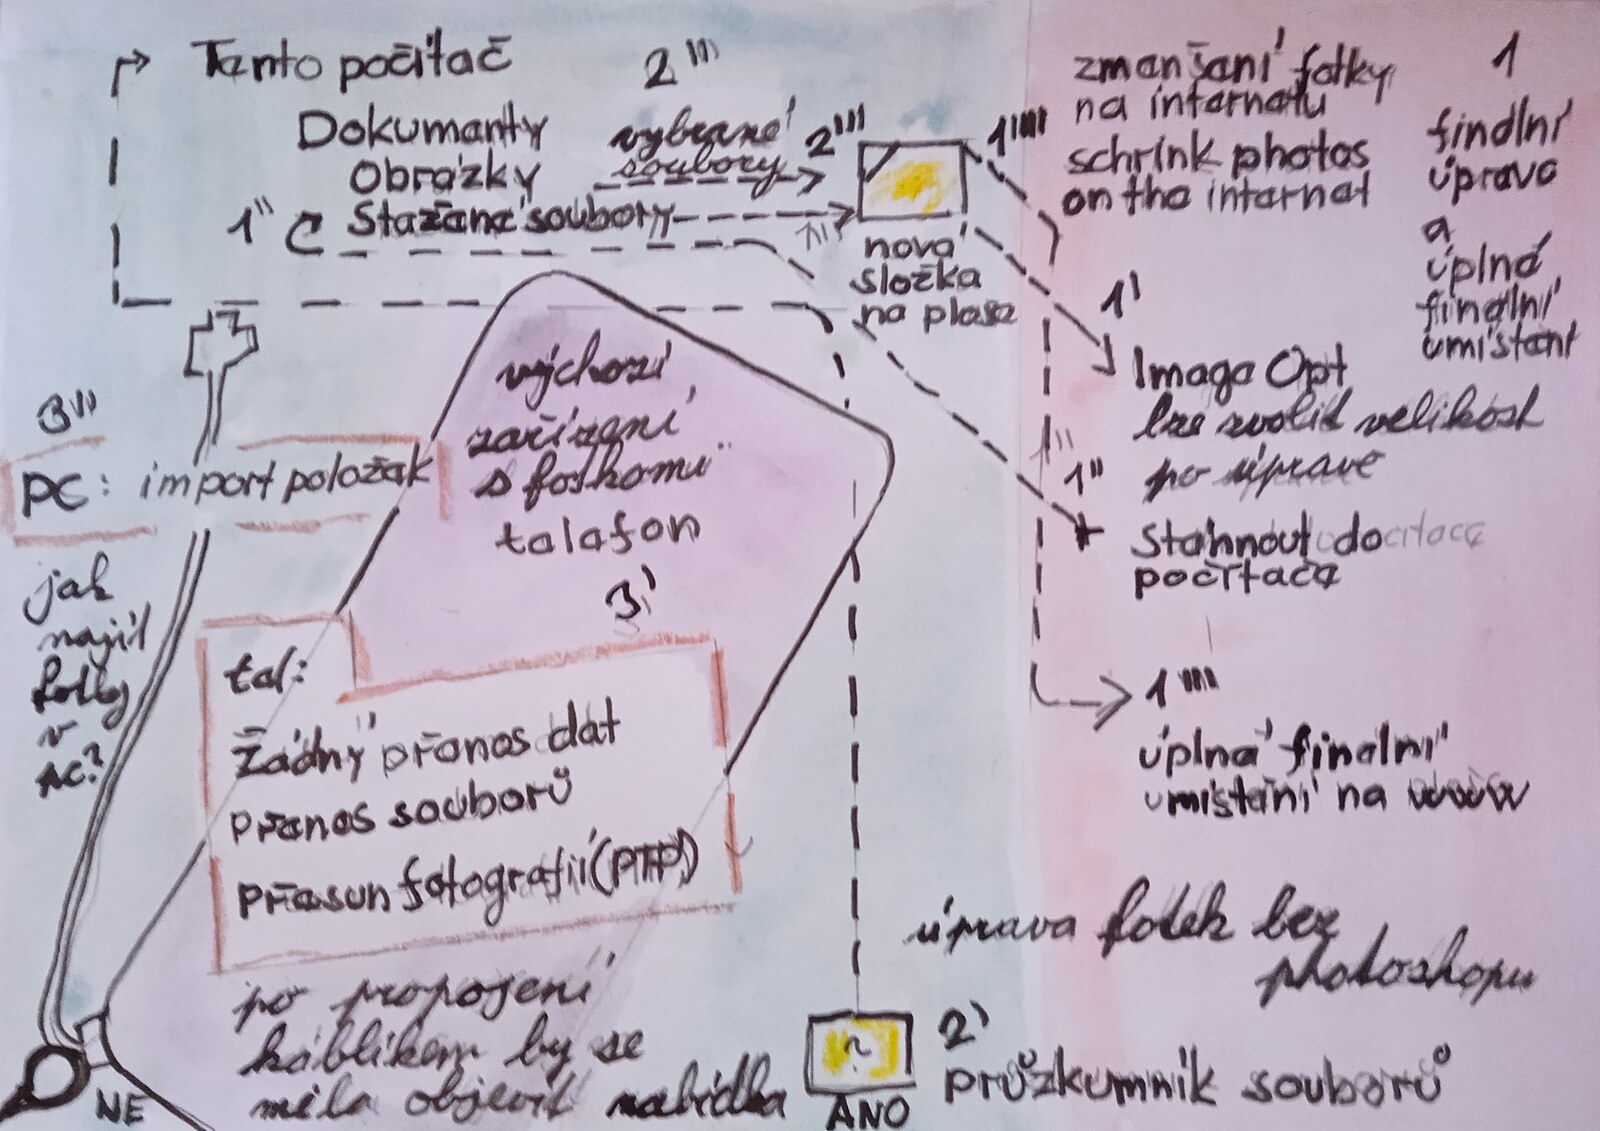 Tento počítač
2'''
Dokumenty
Obrázky
Stažené soubory
1''
vybrané
soubory
2'''
nová
složka
na ploše
1'''''
zmenšení fotky
na internetu
schrink photos
on the internet
1
finální
úprava
a
úplné
finální
umístění
1'
Image Opt
lze zvolit velikost
po úpravě
1''
Stáhnout do
počítače
1''''
úplné finální
umístění na www
3''
PC: import položek
jak
najít
fotky
v
PC?
výchozí
zařízení
s fotkami
telefon
3'
tel:
Žádný přenos dat
Přenos souborů
Přesun fotografií (PTP)
po propojení
káblíkem by se
měla objevit nabídka
NE
ANO
2'
průzkumník souborů
úprava fotek bez
photoshopu